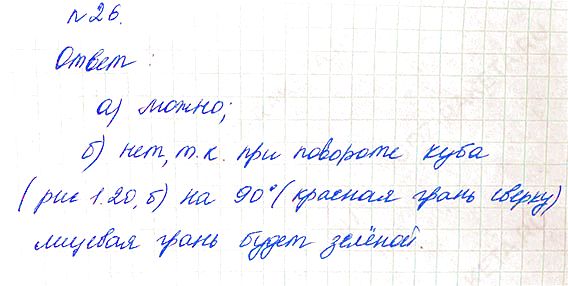 №26.
Ответ:
а) можно;
б) нет, т.к. при повороте куба
(рис 1.20, б) на 90° (красная грань сверху)
лицевая грань будет зелёной.